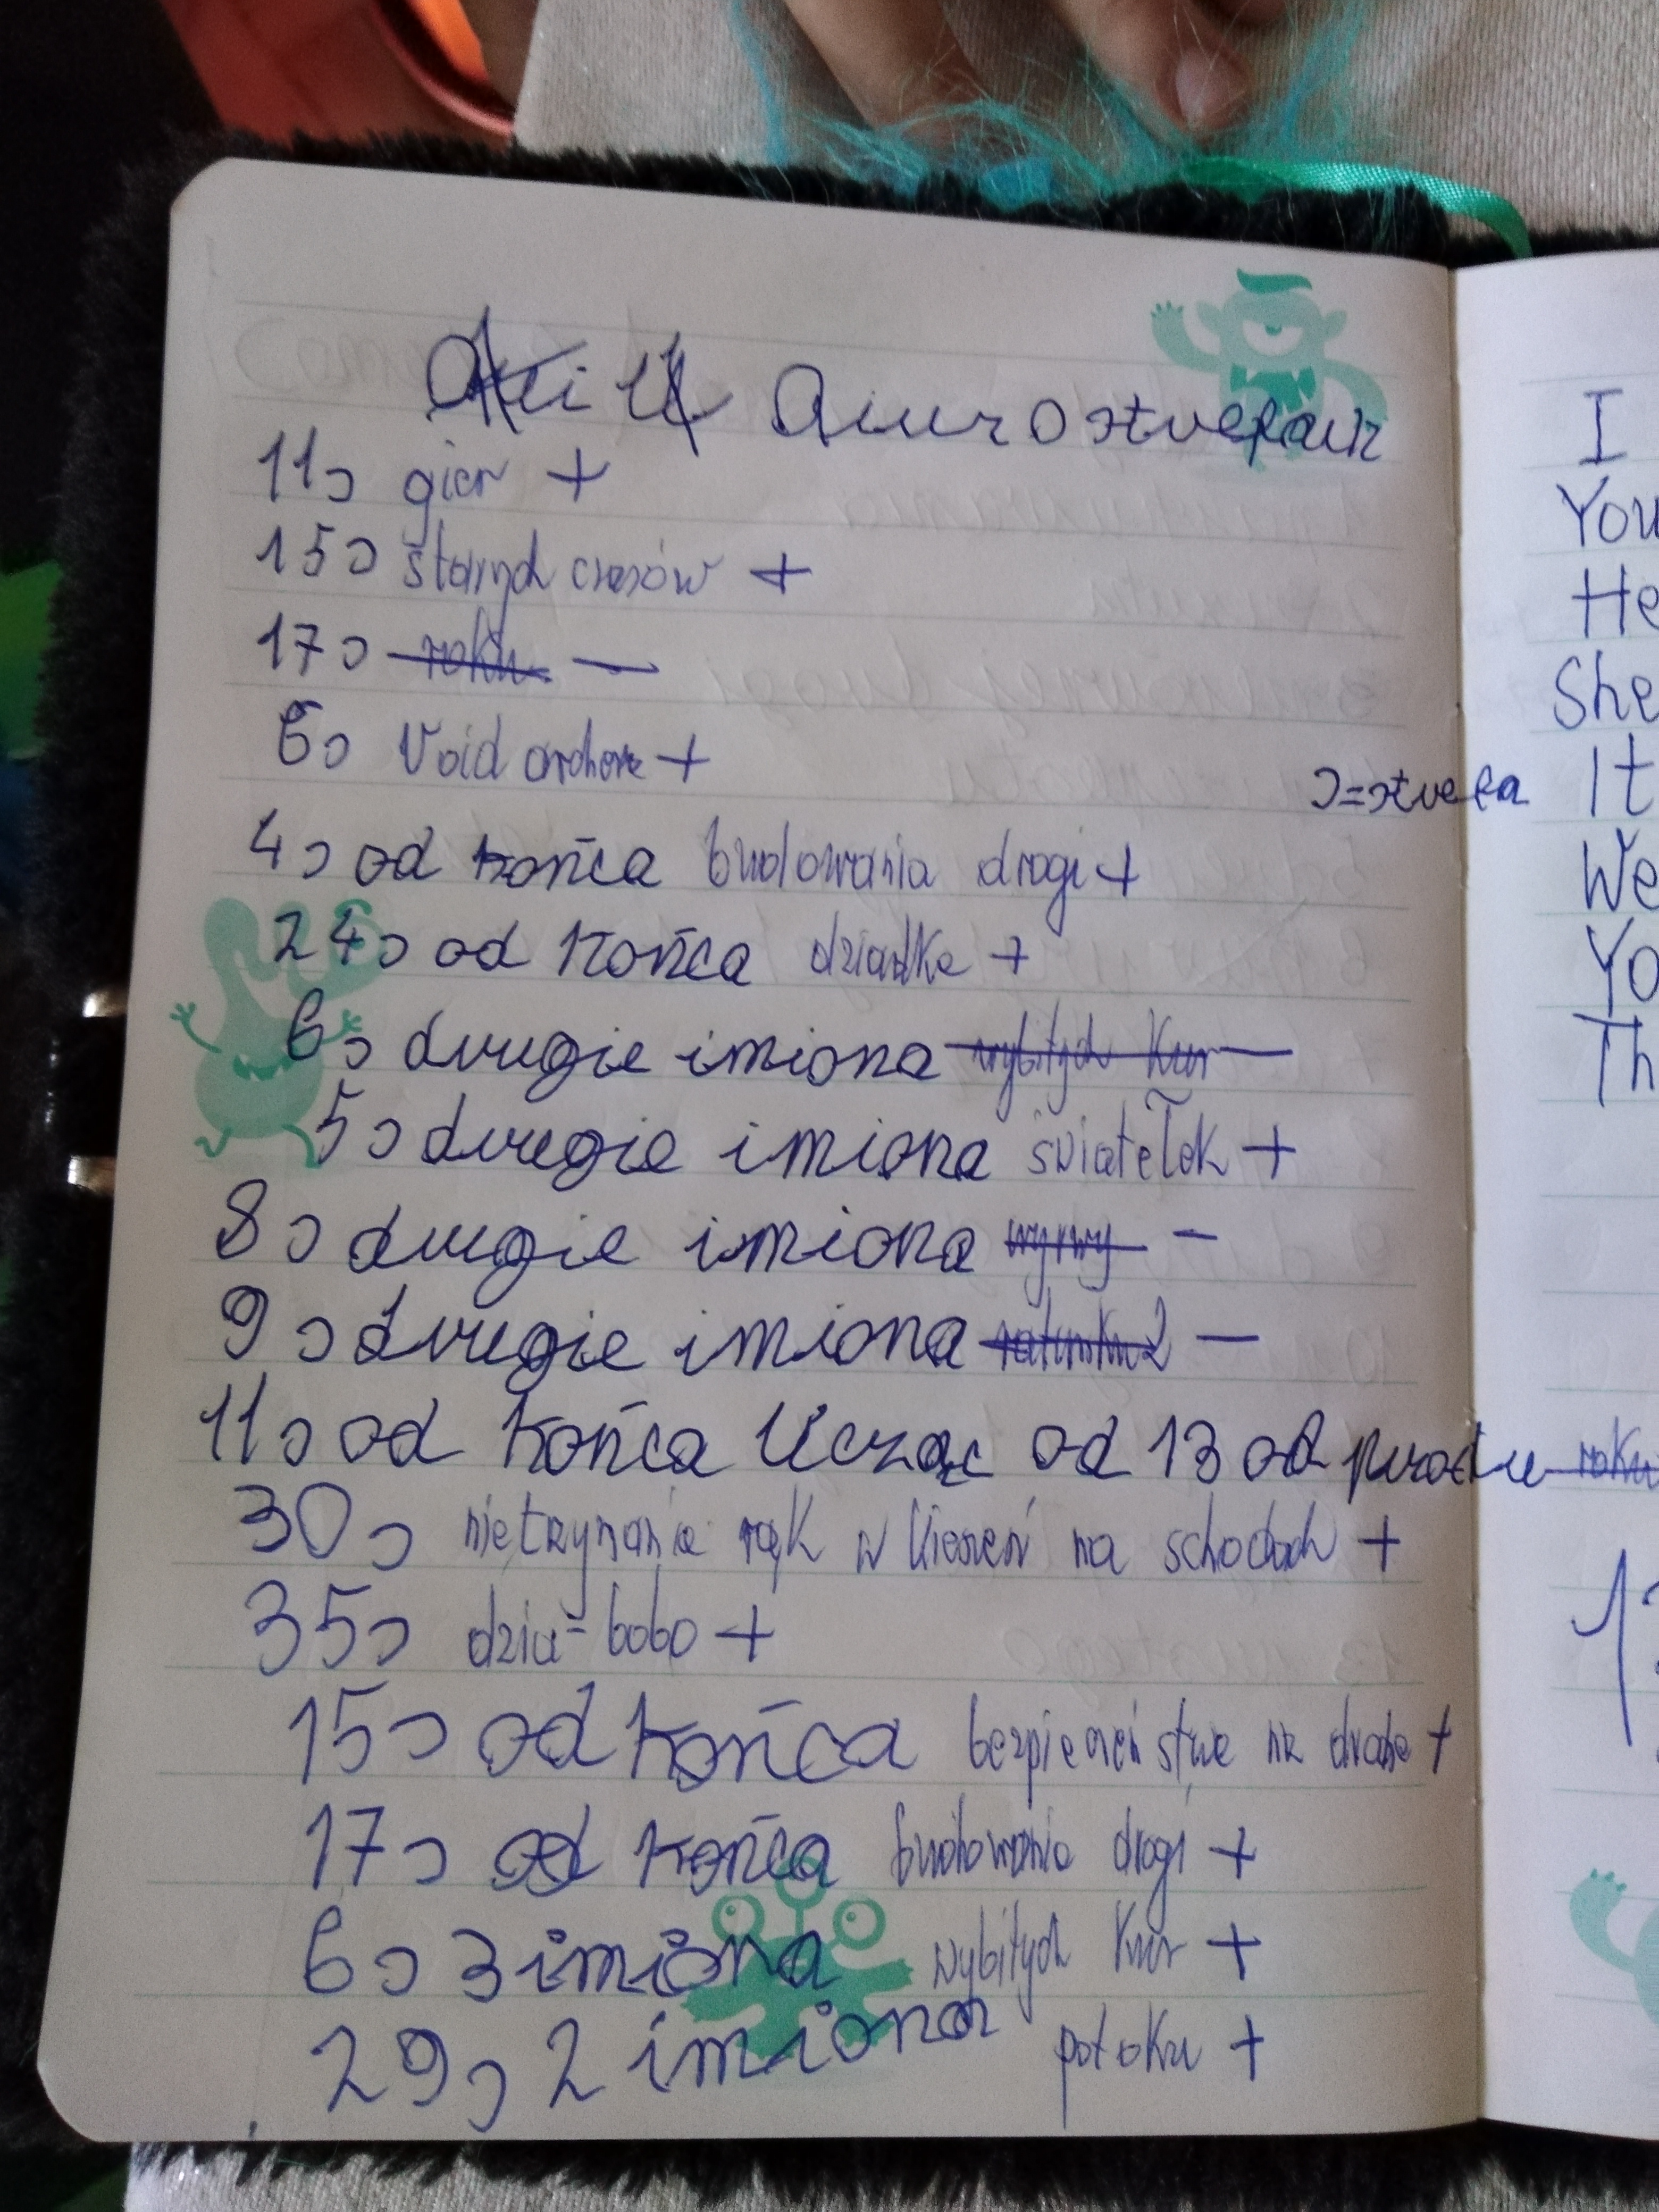 11Ɔ gier +
15Ɔ starych czasów +
17Ɔ roku —
6Ɔ Void +
Ɔ=
4Ɔ od końca budowania drogi +
24Ɔ od końca dziadka +
6Ɔ drugie imiona wybitych kur —
5Ɔ drugie imiona światełek +
8Ɔ drugie imiona wyrwy —
9Ɔ drugie imiona —
11Ɔ od końca licząc od 13 od przodu roku
30Ɔ nietrzymania rąk w kieszeń na schodach +
35Ɔ bobo +
15Ɔ od końca bezpieczeństwa na drodze +
17Ɔ od końca budowania drogi +
6Ɔ 3 imiona wybitych kur +
29Ɔ 2 imiona potoku +
I
You
He
She
It
We
Yo
Th